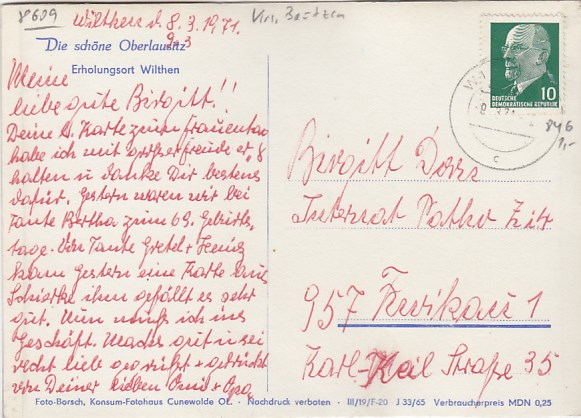 8609
Wilthen d. 8.3.1971.
Krs. Bautzen
Die schöne Oberlausitz
Erholungsort Wilthen
Meine
liebe gute Birgitt!!
Deine l. Karte zum Frauentag
habe ich mit großer Freude er
halten u danke Dir bestens
dafür. Gestern waren wir bei
Tante Bertha zum 69. Geburts
tage. Von Tante Gretel +
kam gestern eine Karte aus
Schierke ihm gefällt es sehr
gut. Nun muß ich ins
Geschäft. Machs gut u sei
recht lieb gegrüßt + gedrückt
von Deiner lieben Omi + Opa
DEUTSCHE
DEMOKRATISCHE REPUBLIK
10
c
846
1,-
Birgitt
Internat
957 Zwickau 1
Karl-Keil Straße 35
Foto-Borsch, Konsum-Fotohaus Cunewalde OL. • Nachdruck verboten • III/19/F-20 J 33/65 Verbraucherpreis MDN 0,25